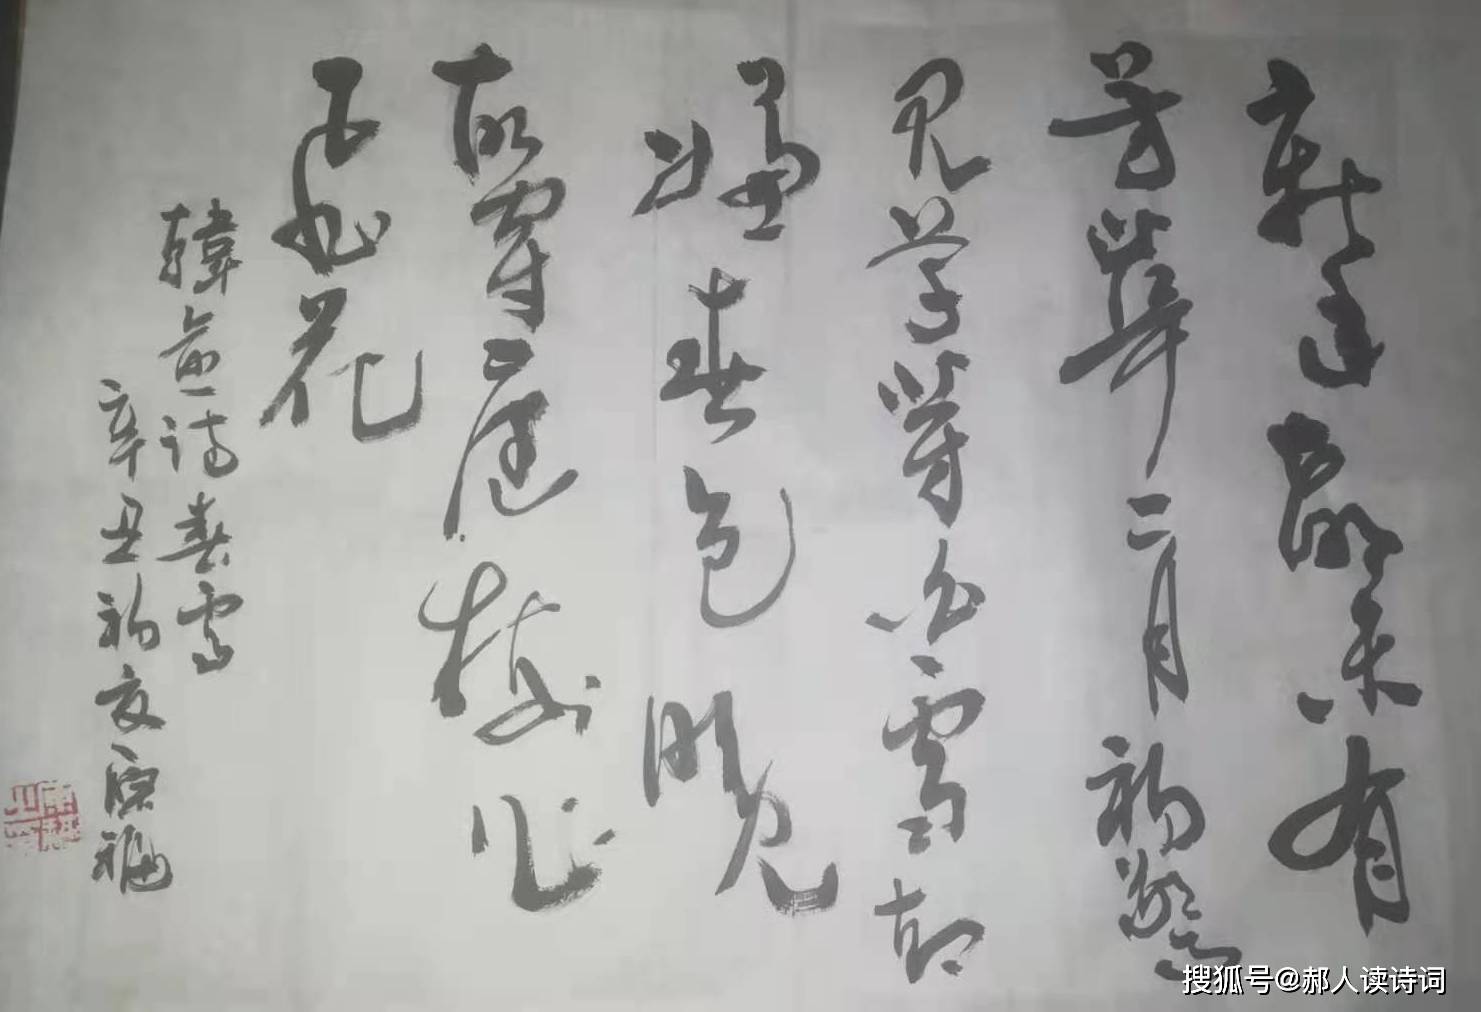 新年都未有
芳華二月初驚
見草芽白雪却
嫌春色晚
故穿庭樹作
飛花
韓愈诗春雪
辛丑初夏
搜狐号@郝人读诗词